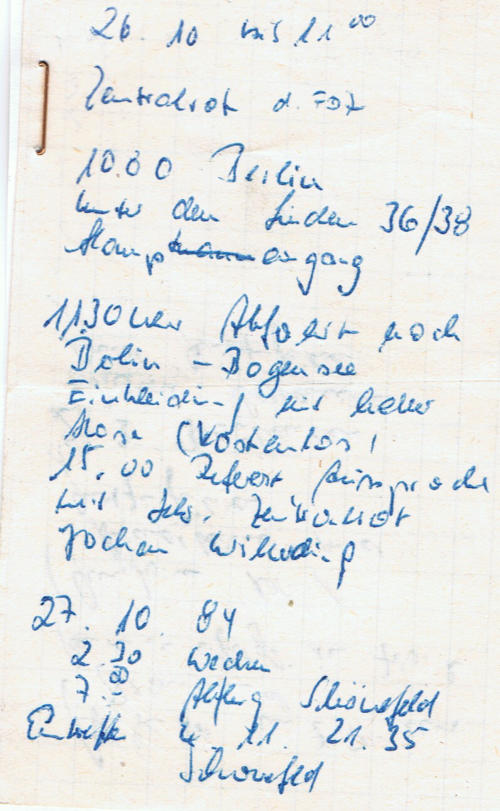 26. 10 bis 11 00
Zentralrat d. FDJ
1080 Berlin
Unter den Linden 36/38
Haupteingang
11.30 Uhr Abfahrt nach
Berlin - Bogensee
Einkleidung mit heller
Hose (Kostenlos)
15.00 Referat Aussprache
mit Sekr. Zentralrat
Jochen Willerding
27. 10. 84
2.30 Wecken
7.00 Abflug Schönefeld
4. 11. 21.35
Schönefeld